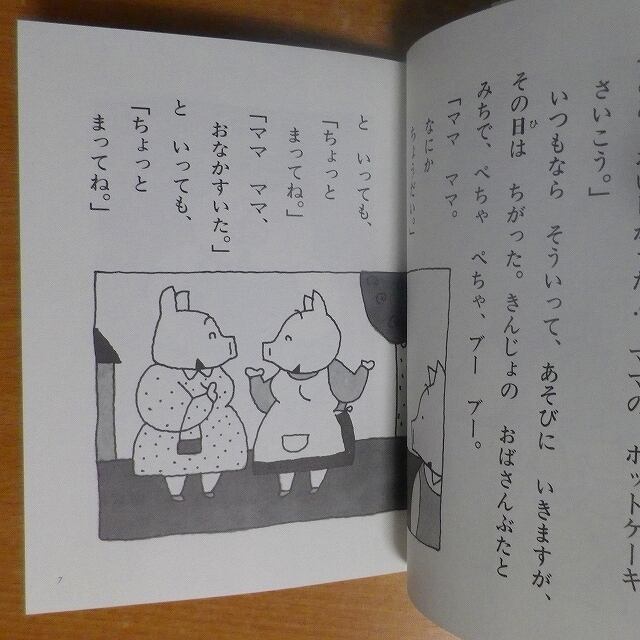 ママの ホットケーキ
さいこう。」
いつもなら そういって、あそびに いきますが、
その日は ちがった。きんじょの おばさんぶたと
ひ
みちで、ぺちゃ ぺちゃ、ブー ブー。
「ママ ママ。
なにか
ちょうだい。」
と いっても、
「ちょっと
まってね。」
「ママ ママ、
おなかすいた。」
と いっても、
「ちょっと
まってね。」
7